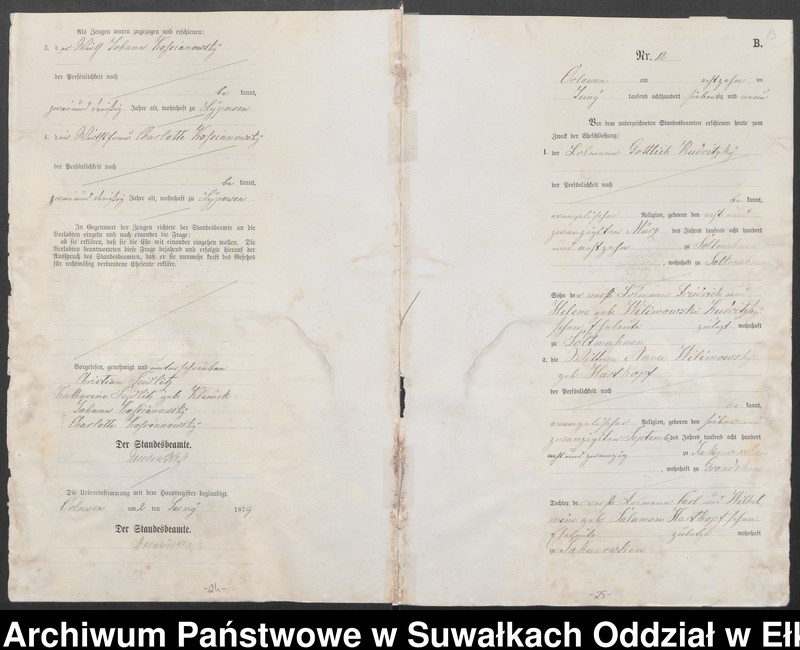 Als Zeugen waren zugezogen und erschienen:
3. der Wirth Johann Kossianowsky
der Persönlichkeit nach
be kannt,
zwei und dreißig Jahre alt, wohnhaft zu Lypowen
4. die Wirthsfrau Charlotte Kossianowsky
der Persönlichkeit nach
be kannt,
zwei und dreißig Jahre alt, wohnhaft zu Lypowen
In Gegenwart der Zeugen richtete der Standesbeamte an die
Verlobten einzeln und nach einander die Frage:
ob sie erklären, daß sie die Ehe mit einander eingehen wollen. Die
Verlobten beantworteten diese Frage bejahend und erfolgte hierauf der
Ausspruch des Standesbeamten, daß er sie nunmehr kraft des Gesetzes
für rechtmäßig verbundene Eheleute erkläre.
Vorgelesen, genehmigt und unterschrieben
Christian Sewtitz
Katharina geb. Klimek
Johann Kossianowsky
Charlotte Kossianowsky
Der Standesbeamte.
Die Uebereinstimmung mit dem Hauptregister beglaubigt.
Orlowen am 2 ten Juny 1879
Der Standesbeamte.
-24-
B.
13
Nr. 12
Orlowen am achtzehn ten
Juny tausend achthundert siebenzig und neun
Vor dem unterzeichneten Standesbeamten erschienen heute zum
Zweck der Eheschließung:
1. der Losmann Gottlieb Kudritzky
der Persönlichkeit nach
be kannt,
evangelischer Religion, geboren den acht und
zwanzigsten März des Jahres tausend acht hundert
und achtzehn zu Soltmahnen
, wohnhaft zu Soltmahnen
Sohn der Losmann Friedrich und
Helene geb. Wilimowski Kudritzky
schen Eheleute zuletzt wohnhaft
zu Soltmahnen
2. die Wittwe Anna Wilimowsky
geb. Hartkopf
der Persönlichkeit nach
be kannt,
evangelischer Religion, geboren den sieben und
zwanzigsten Septemb. des Jahres tausend acht hundert
acht und zwanzig zu Jakunowken
, wohnhaft zu
Tochter der Losmann Carl und Wilhel
mine geb. Salamon Hartkopf schen
Eheleute zuletzt wohnhaft
zu Jakunowken
-25-
Archiwum Państwowe w Suwałkach Oddział w Ełk